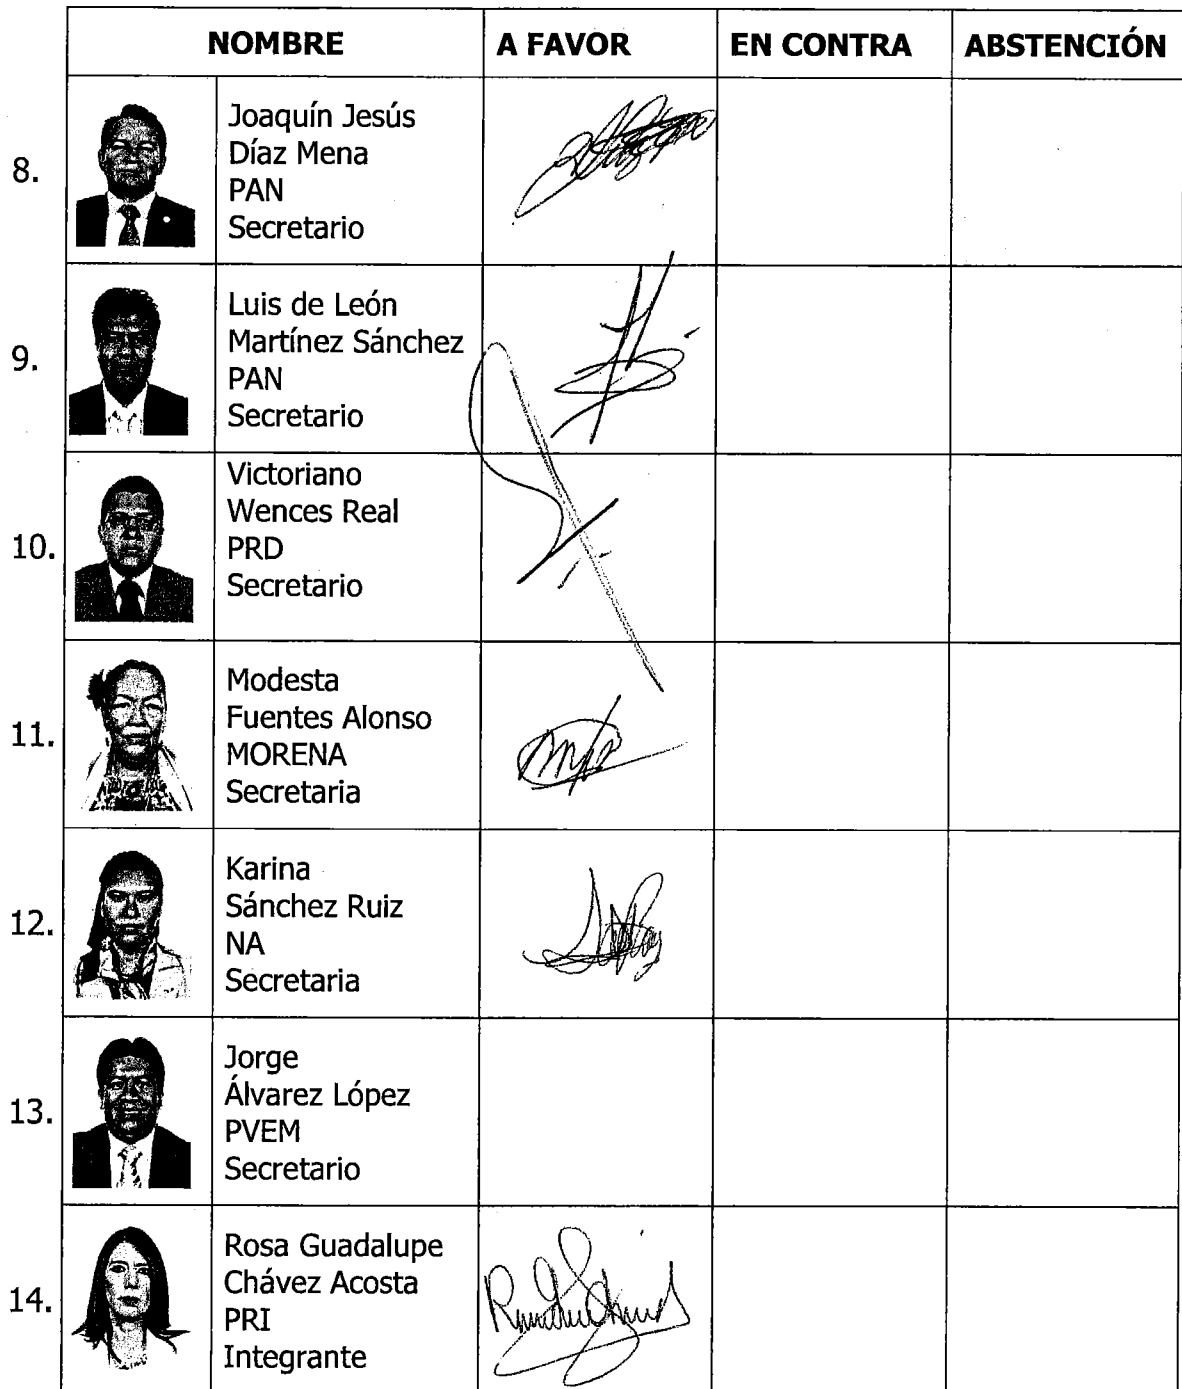 NOMBRE A FAVOR EN CONTRA ABSTENCIÓN
8.
Joaquín Jesús
Díaz Mena
PAN
Secretario
9.
Luis de León
Martínez Sánchez
PAN
Secretario
10.
Victoriano
Wences Real
PRD
Secretario
11.
Modesta
Fuentes Alonso
MORENA
Secretaria
12.
Karina
Sánchez Ruiz
NA
Secretaria
13.
Jorge
Álvarez López
PVEM
Secretario
14.
Rosa Guadalupe
Chávez Acosta
PRI
Integrante